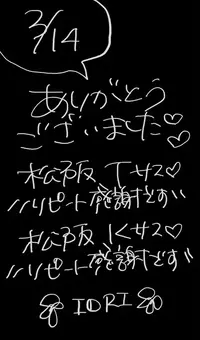 3/14
ありがとう
ございました♡♡
松阪 Tサマ♡
リピート感謝です
松阪 Kサマ♡
リピート感謝です
IORI